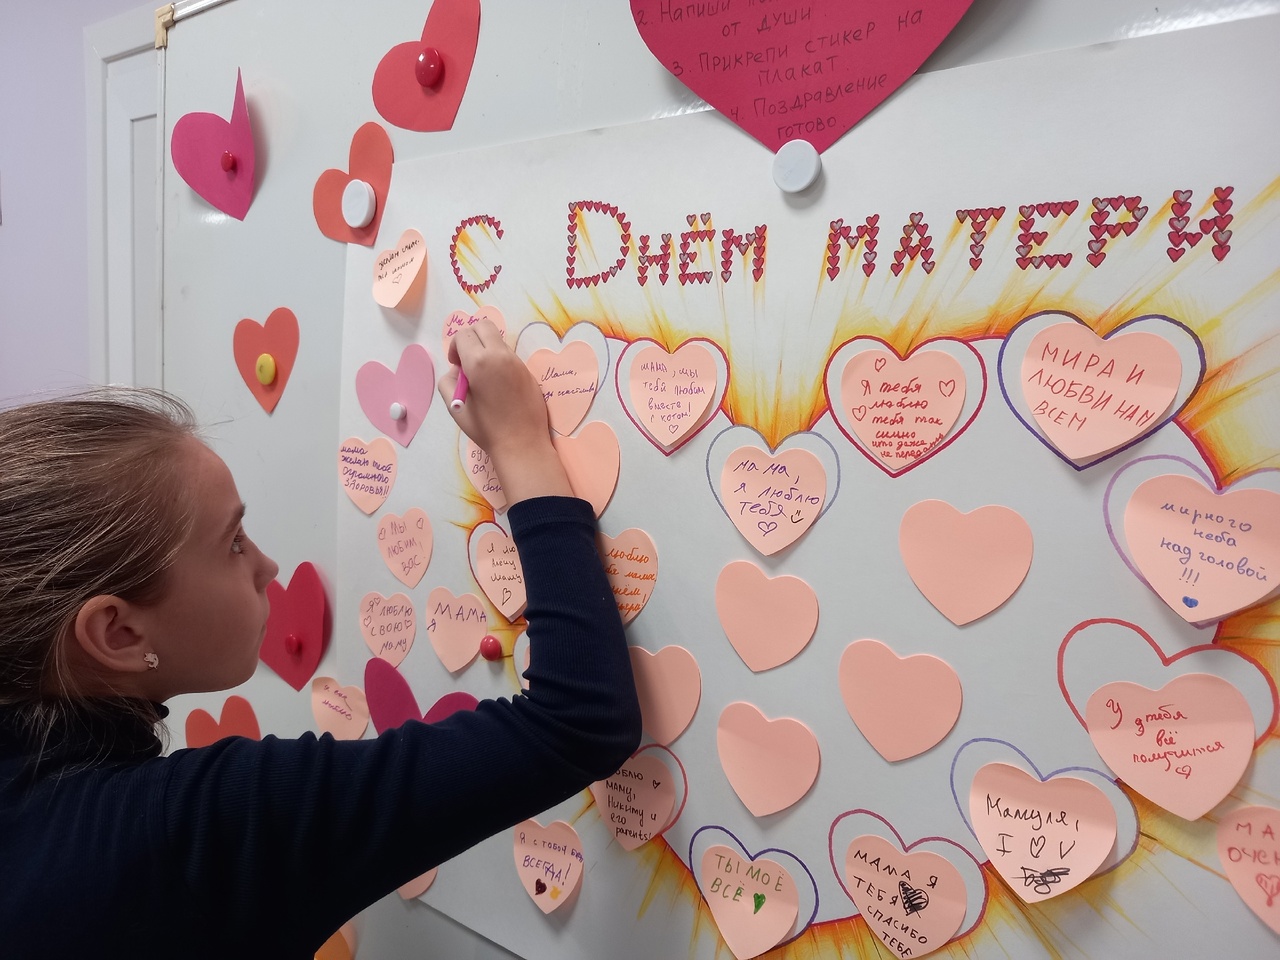 2. Напиши
от души
3. Прикрепи стикер на
плакат
4. Поздравление
готово.
С Днём матери
Мама,
счастлива
мама, мы
тебя любим
вместе
с котом!
Я тебя
люблю
тебя так
сильно
что даже
не передать
МИРА И
ЛЮБВИ НАМ
ВСЕМ
мама,
я люблю
тебя
мирного
неба
над головой
!!!
мама
желаю тебе
огромного
здоровья!!
МЫ
ЛЮБИМ
ВАС
Я ЛЮБЛЮ
СВОЮ
МАМУ
МАМА
Я
Я вас
люблю
люблю
мама,
У тебя
всё
получится
люблю
маму,
Никиту и
его
parents!
Я с тобой буду
ВСЕГДА!
ТЫ МОЁ
ВСЁ
МАМА Я
ТЕБЯ
СПАСИБО
ТЕБЕ
Мамуля,
I ♡ V
МА
ОЧЕН